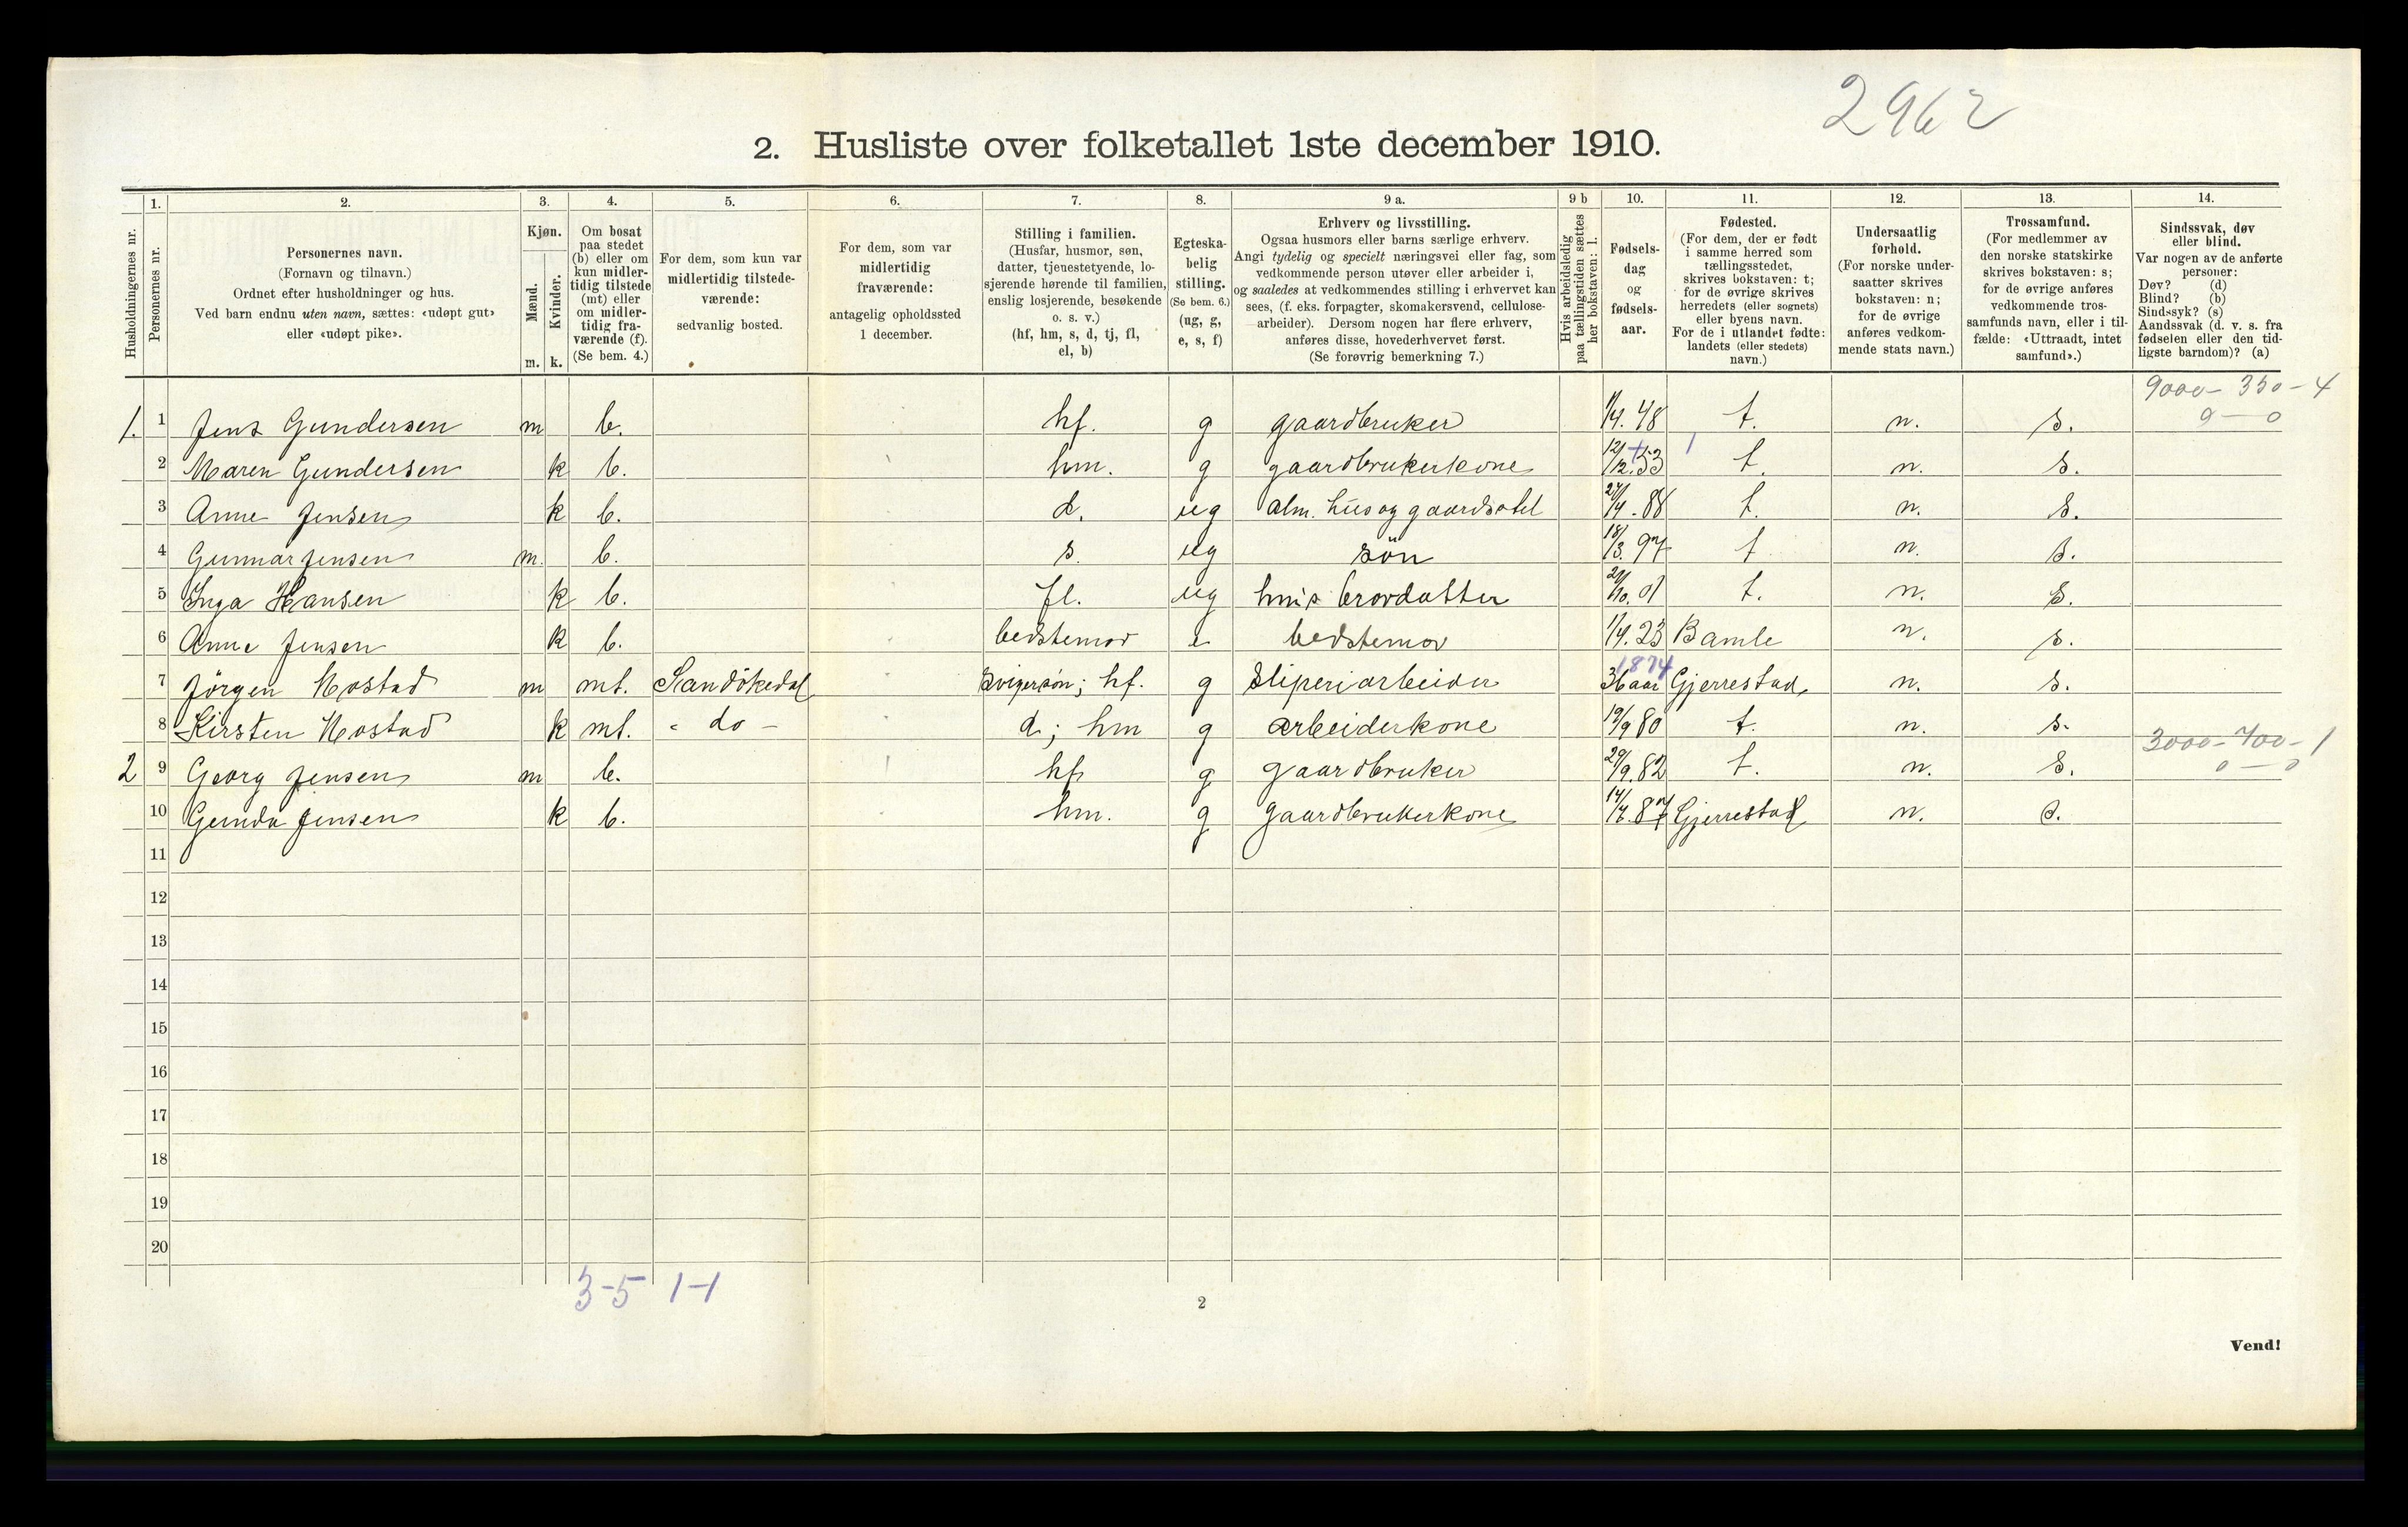 2962
2. Husliste over folketallet 1ste december 1910.
Husholdningernes nr. | 1. Personernes nr. | 2. Personernes navn. (Fornavn og tilnavn.) Ordnet efter husholdninger og hus. Ved barn endnu uten navn, sættes: «udøpt gut» eller «udøpt pike». | 3. Kjøn. Mænd. m. Kvinder. k. | 4. Om bosat paa stedet (b) eller om kun midlertidig tilstede (mt) eller om midlertidig fraværende (f). (Se bem. 4.) | 5. For dem, som kun var midlertidig tilstedeværende: sedvanlig bosted. | 6. For dem, som var midlertidig fraværende: antagelig opholdssted 1 december. | 7. Stilling i familien. (Husfar, husmor, søn, datter, tjenestetyende, losjerende hørende til familien, enslig losjerende, besøkende o. s. v.) (hf, hm, s, d, tj, fl, el, b) | 8. Egteskabelig stilling. (Se bem. 6.) (ug, g, e, s, f) | 9 a. Erhverv og livsstilling. Ogsaa husmors eller barns særlige erhverv. Angi tydelig og specielt næringsvei eller fag, som vedkommende person utøver eller arbeider i, og saaledes at vedkommendes stilling i erhvervet kan sees, (f. eks. forpagter, skomakersvend, cellulosearbeider). Dersom nogen har flere erhverv, anføres disse, hovederhvervet først. (Se forøvrig bemerkning 7.) | 9 b Hvis arbeidsledig paa tællingstiden sættes her bokstaven: l. | 10. Fødselsdag og fødselsaar. | 11. Fødested. (For dem, der er født i samme herred som tællingsstedet, skrives bokstaven: t; for de øvrige skrives herredets (eller sognets) eller byens navn. For de i utlandet fødte: landets (eller stedets) navn.) | 12. Undersaatlig forhold. (For norske undersaatter skrives bokstaven: n; for de øvrige anføres vedkommende stats navn.) | 13. Trossamfund. (For medlemmer av den norske statskirke skrives bokstaven: s; for de øvrige anføres vedkommende trossamfunds navn, eller i tilfælde: «Uttraadt, intet samfund».) | 14. Sindssvak, døv eller blind. Var nogen av de anførte personer: Døv? (d) Blind? (b) Sindssyk? (s) Aandssvak (d. v. s. fra fødselen eller den tidligste barndom)? (a)
9000 - 350 - 4
0 — 0
1. 1 Jens Gundersen m b. hf. g gaardbruker 1/4. 48 t. n. s.
2 Maren Gundersen k b. hm. g gaardbrukerkone 12/12. 53 t. n. s.
3 Anne Jensen k b. d. ug alm. hus og gaardsstel 24/4 - 88 t. n. s.
4 Gunnar Jensen m. b. s. ug søn 18/3. 97 t n. s.
5 Inga Hansen k b. fl. ug hm's brordatter /10. 01 t. n. s.
6 Anne Jensen k b. bedstemor e bedstemor 1/4. 23 Bamle n. s.
1874
7 Jörgen Mostad m mt. Sandökedal svigersön; hf. g Sliperiarbeider 36 aar Gjerrestad n. s.
8 Kirsten Mostad k mt. " do - d; hm g arbeiderkone 19/9 80 t. n. s.
3000 - 700 - 1
0 — 0
2 9 Georg Jensen m b. hf g gaardbruker 29/9. 82 t. n. s.
10 Gunda Jensen k b. hm. g gaardbrukerkone 14/7. 87 Gjerrestad n. s.
11
12
13
14
15
16
17
18
19
20
3-5 1-1
2
Vend!